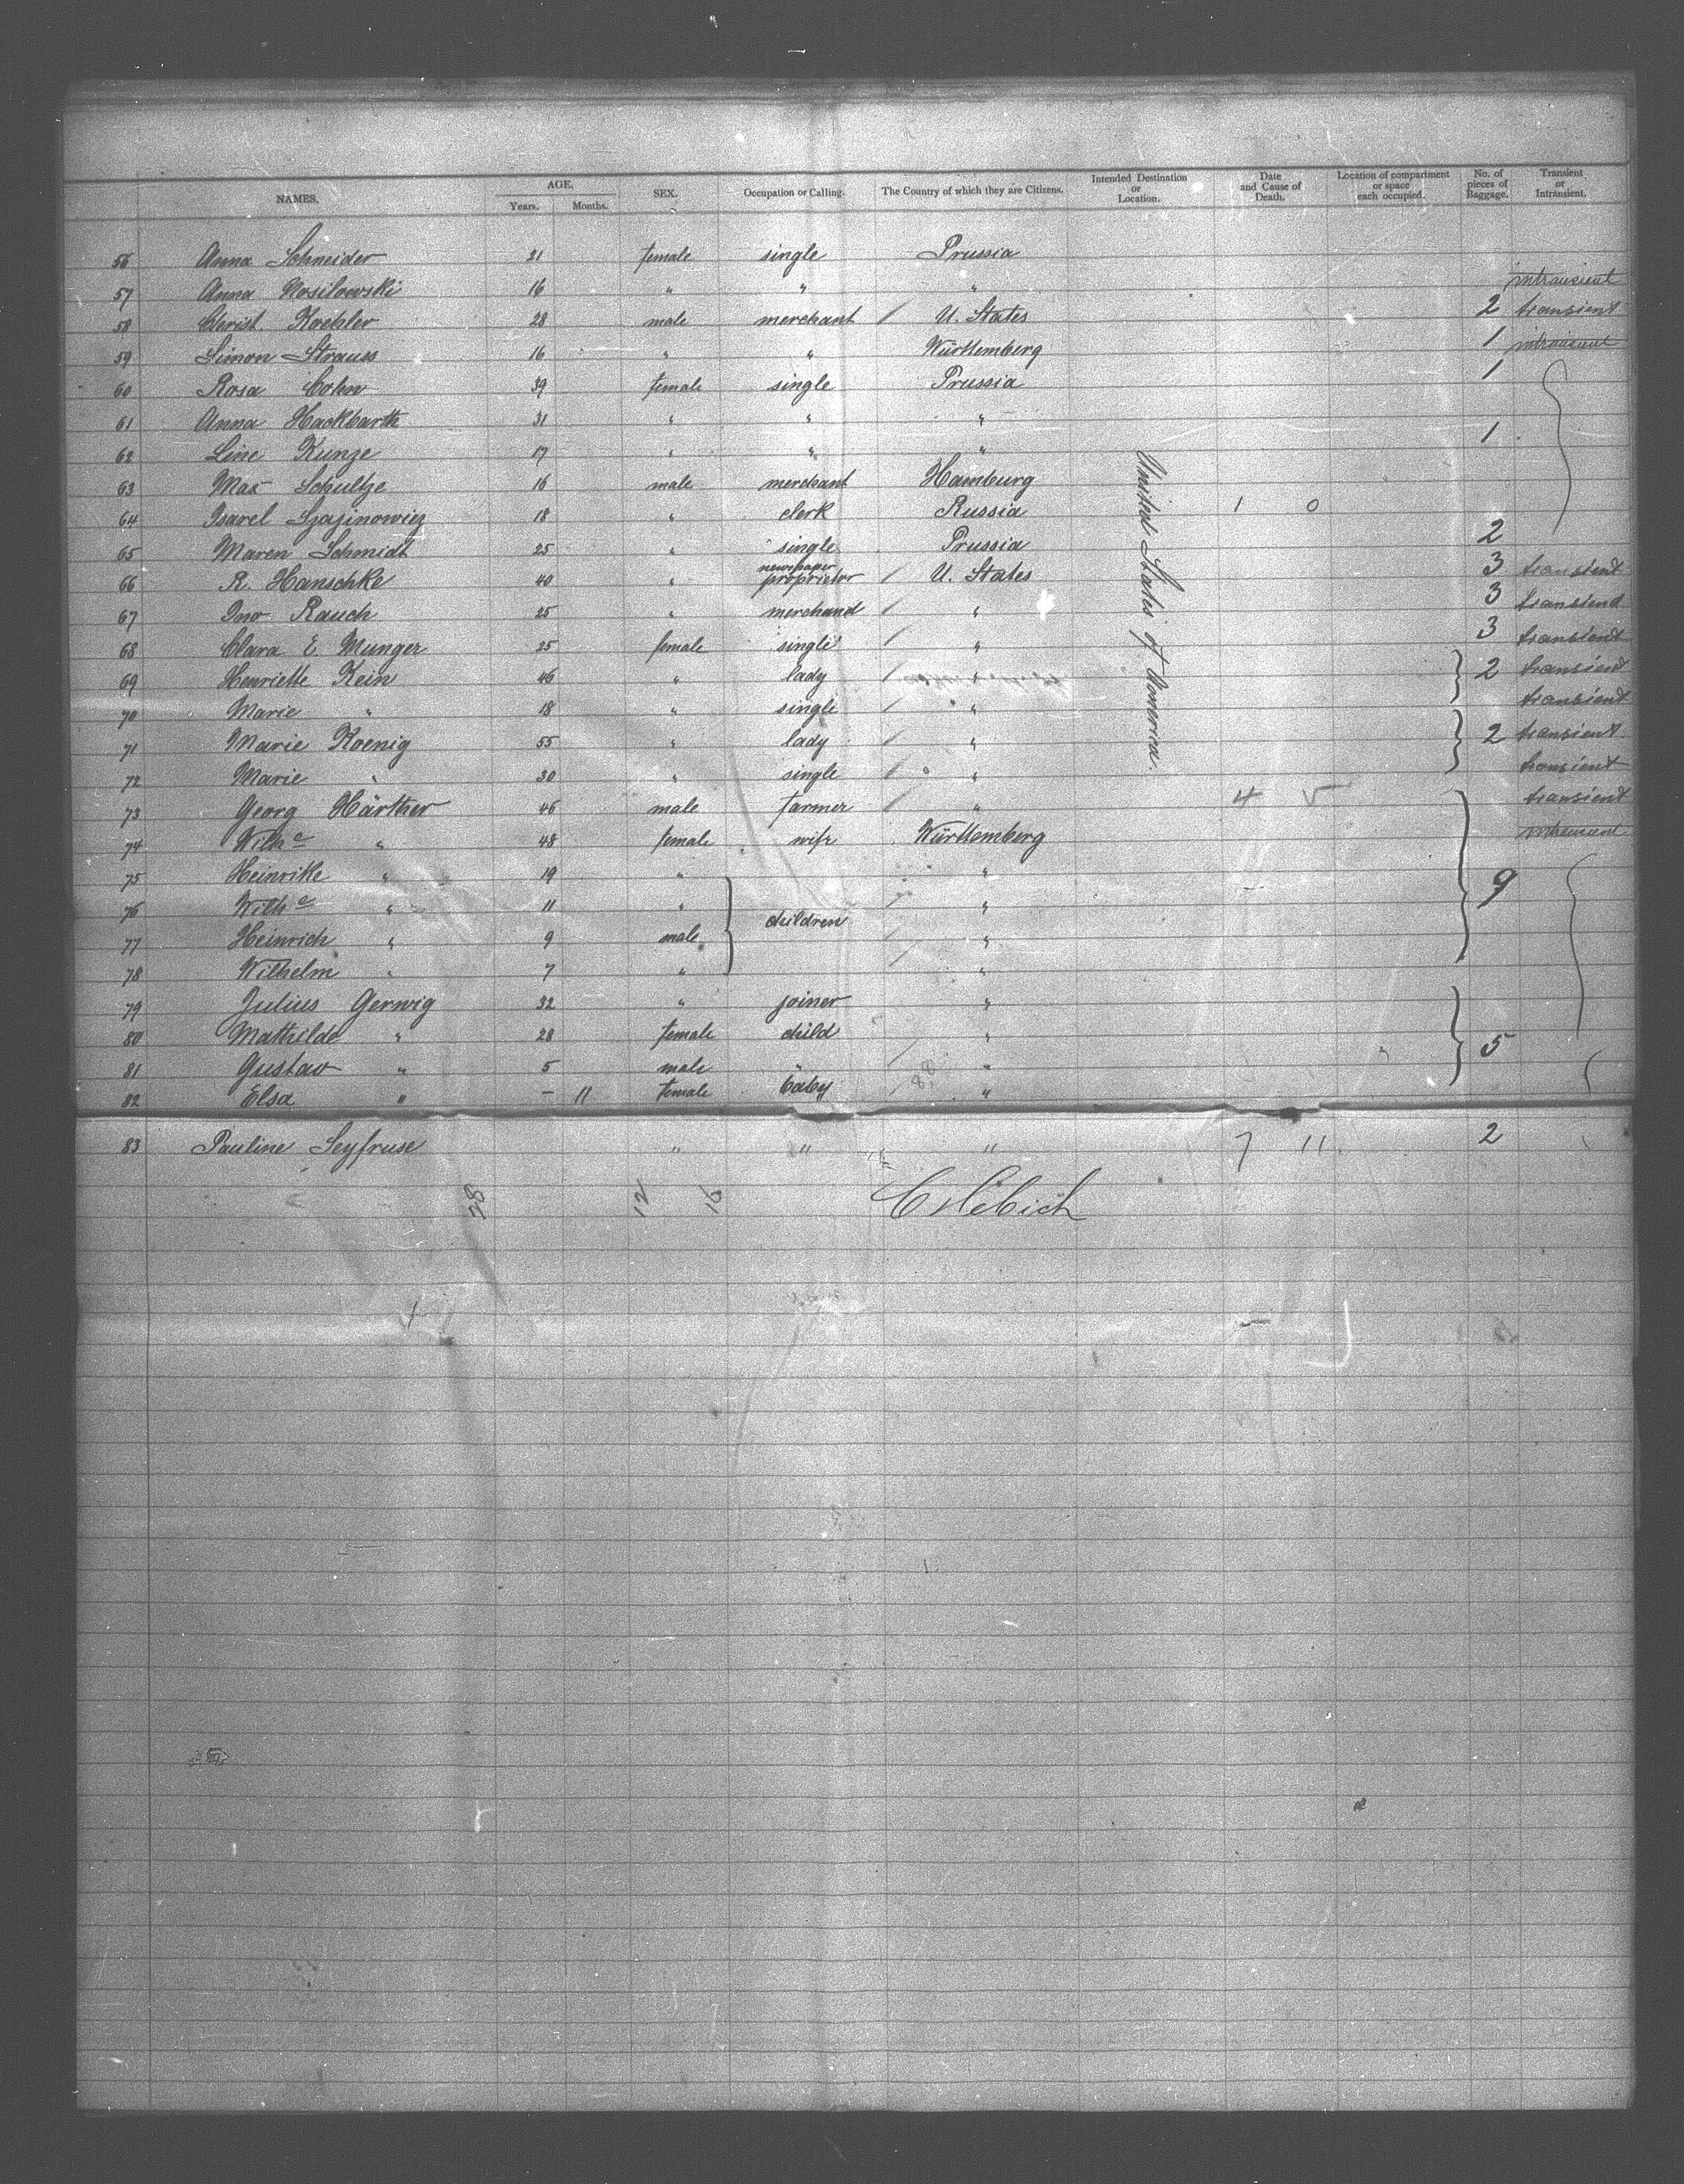 NAMES. AGE. Years. Months. SEX. Occupation or Calling. The Country of which they are Citizens. Intended Destination or Location. Date and Cause of Death. Location of compartment or space each occupied. No. of pieces of Baggage. Transient or Intransient.
56 Anna Schneider 21 female single Prussia
57 Anna Wosilowski 16 " " " intransient
58 Christ Koehler 28 male merchant / U. States 2 transient
59 Simon Strauss 16 " " Württemberg 1 intransient
60 Rosa Cohn 39 female single Prussia 1
61 Anna Hackbarth 31 " " "
62 Line Kunze 17 " " " 1
63 Max Schultze 16 male merchant Hamburg
64 18 " clerk Russia 1 0
65 Maren Schmidt 25 " single Prussia 2
66 R. Hanschke 40 " newspaper proprietor / U. States 3 transient
67 Jno Rauch 25 " merchand / " 3 transiend
68 Clara E Munger 25 female single / " 3 transient
69 Henriette Kein 46 " lady / " 2 transient
70 Marie " 18 " single / " transient
71 Marie Koenig 55 " lady / " 2 transient
72 Marie " 30 " single / " transient
73 Georg Härther 46 male farmer / " 4 5 transient
74 Wilh e " 48 female wife Württemberg intransient
75 Heinrike " 19 " "
76 Wilh e " 11 " children " 9
77 Heinrich " 9 male "
78 Wilhelm " 7 " "
79 Julius Gerwig 32 " joiner "
80 Mathilde " 28 female child " 5
81 Gustav " 5 male "
82 Elsa " – 11 female baby "
United States of America.
83 Pauline Seyfruse " " " 7 11 2
28 12 16